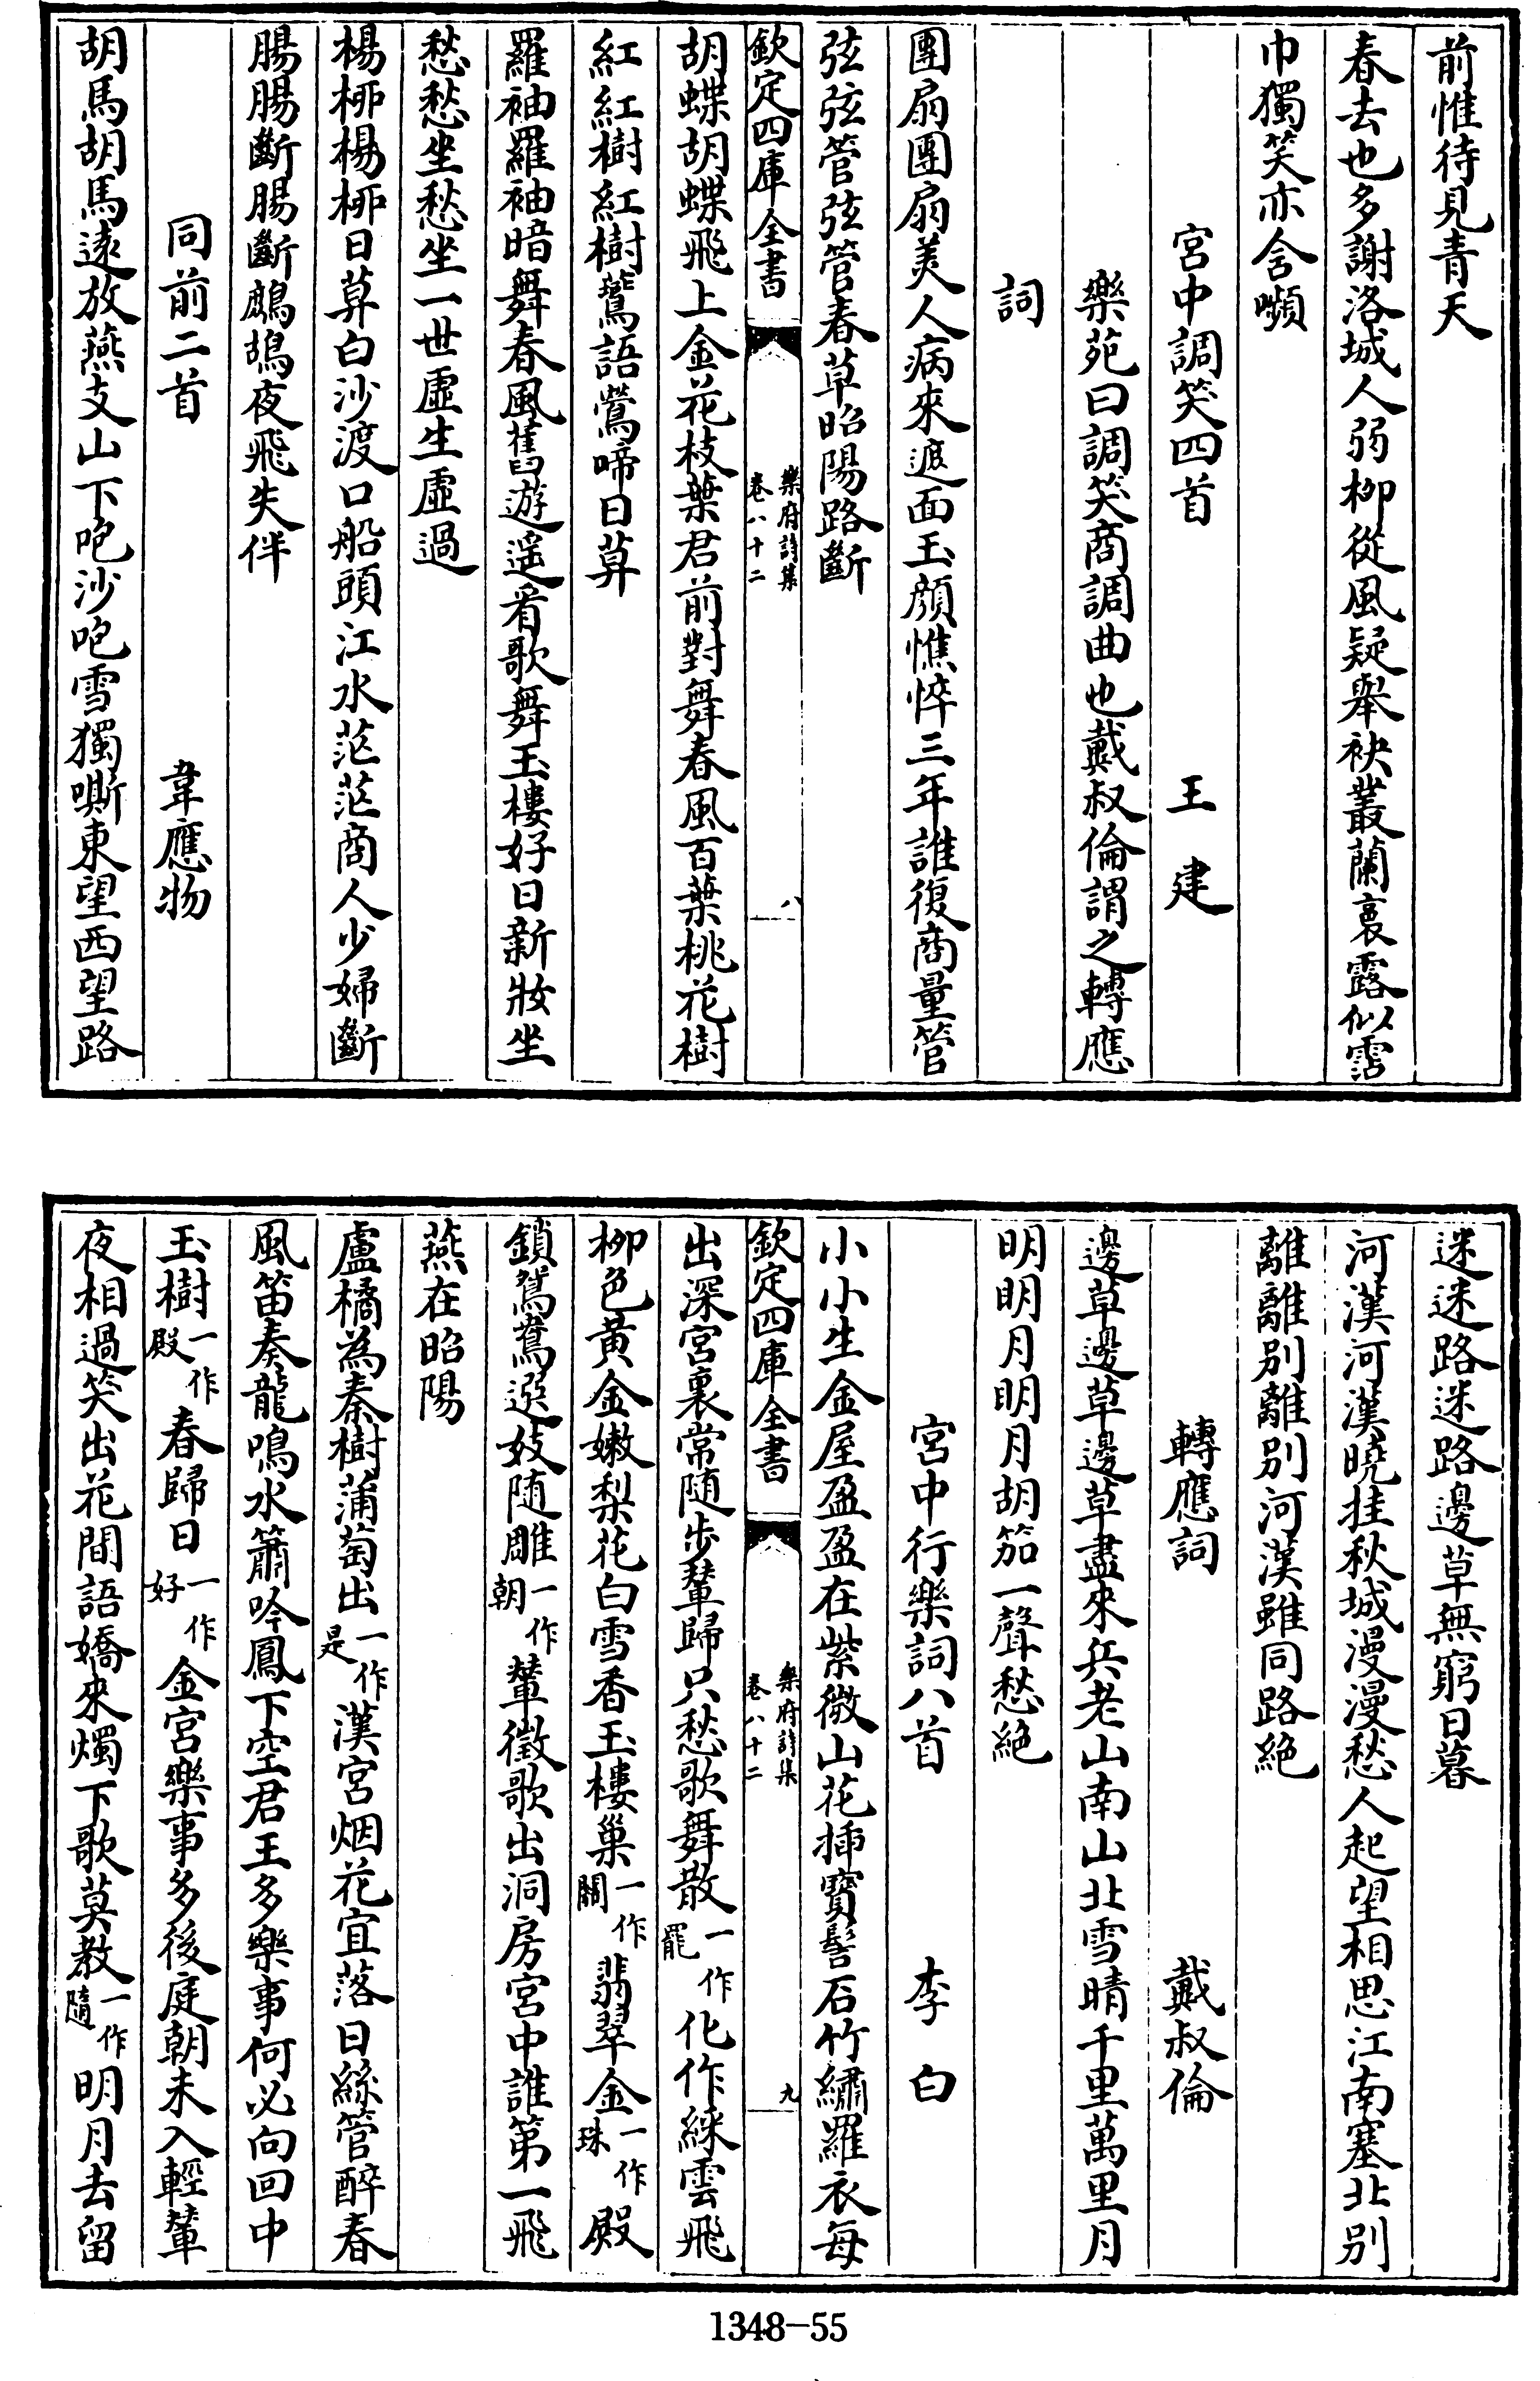 前惟待見青天
春去也多謝洛城人弱柳從風疑舉袂叢蘭裛露似霑
巾獨笑亦含嚬
宮中調笑四首 王建
樂苑曰調笑商調曲也戴叔倫謂之轉應
詞
團扇團扇美人病來遮面玉顔憔悴三年誰復商量管
弦弦管弦管春草昭陽路斷
欽定四庫全書 樂府詩集 卷八十二 八
胡蝶胡蝶飛上金花枝葉君前對舞春風百葉桃花樹
紅紅樹紅樹鷰語鶯啼日暮
羅袖羅袖暗舞春風舊遊遥看歌舞玉樓好日新妝坐
愁愁坐愁坐一世虛生虛過
楊栁楊栁日暮白沙渡口船頭江水茫茫商人少婦斷
腸腸斷腸斷鷓鴣夜飛失伴
同前二首 韋應物
胡馬胡馬遠放燕支山下咆沙咆雪獨嘶東望西望路
迷迷路迷路邊草無窮日暮
河漢河漢曉挂秋城漫漫愁人起望相思江南塞北别
離離别離别河漢雖同路絶
轉應詞 戴叔倫
邊草邊草邊草盡來兵老山南山北雪晴千里萬里月
明明月明月胡笳一聲愁絶
宮中行樂詞八首 李白
小小生金屋盈盈在紫微山花揷寶髻石竹繡羅衣每
欽定四庫全書 樂府詩集 卷八十二 九
出深宮裏常随步輦歸只愁歌舞散一作罷化作綵雲飛
柳色黄金嫩梨花白雪香玉樓巢一作關翡翠金一作珠殿
鎖鴛鴦選妓随雕一作朝輦徵歌出洞房宮中誰第一飛
燕在昭陽
盧橘為秦樹蒲萄出一作是漢宮烟花宜落日絲管醉春
風笛奏龍鳴水簫吟鳳下空君王多樂事何必向回中
玉樹一作殿春歸日一作好金宮樂事多後庭朝未入輕輦
夜相過笑出花間語嬌來燭下歌莫教一作隨明月去留
1348-55